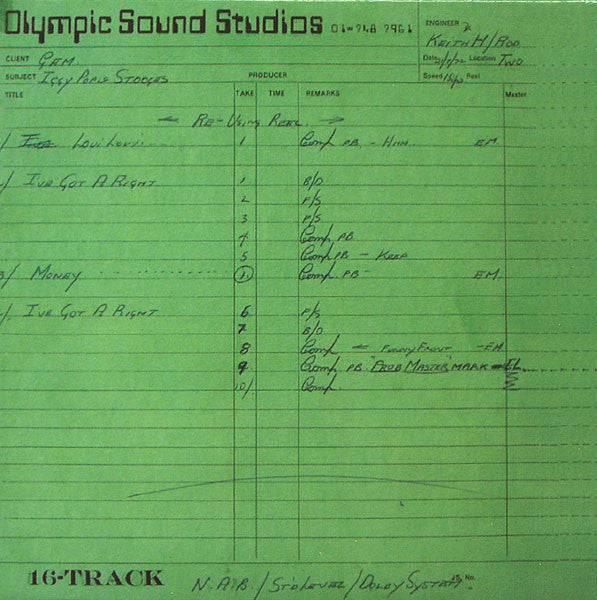 Olympic Sound Studios 01-748 7961
ENGINEER
Keith H/Rod
CLIENT GEM
Date Location Two
SUBJECT Iggy Pop & Stooges PRODUCER
Speed Reel
TITLE TAKE TIME REMARKS Master
← Re-Using Reel. →
Loui Loui 1 Comp PB. - Hmm. EM
I've Got A Right 1 B/D
2 F/S
3 F/S
4 Comp PB
5 Comp PB - Keep
3/ Money 1. Comp. PB - EM
I've Got A Right 6 F/S
7 B/D
8 Comp ← Funny Front - EM
9 Comp PB "Prob Master" Mark EL
10/. Comp
16-TRACK N.A.B./Std Level/Dolby System No.